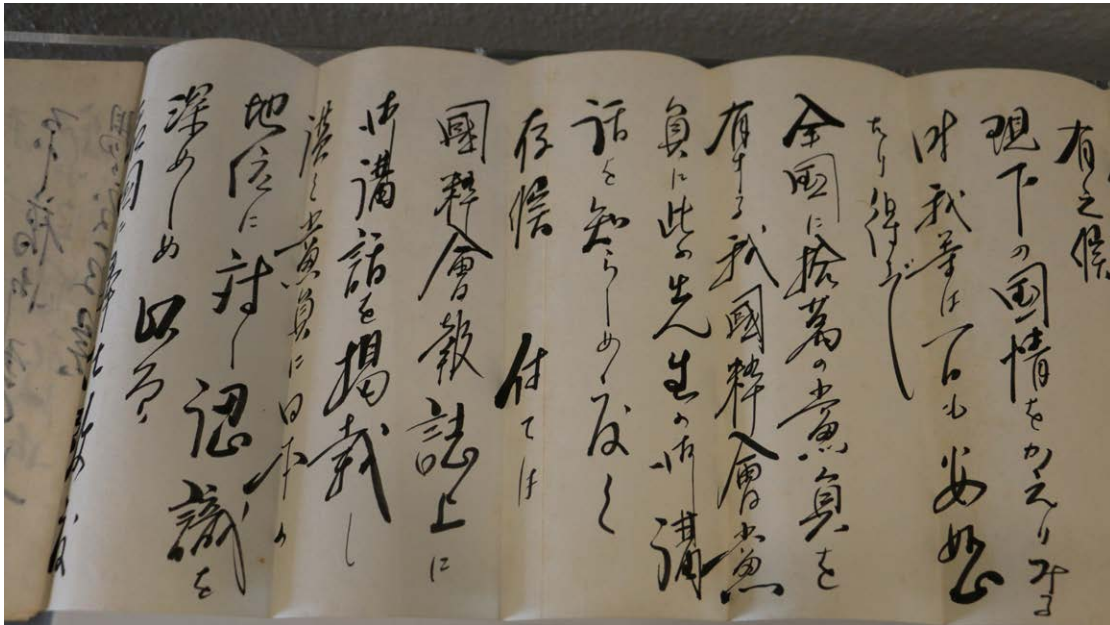 有之候
現下の国情をかえりみる
時我等は一日も安如
たり得ず
全国に拾萬の党員を
有する我國粋會党
員に此の先生の御講
話を知らしめ度く
存候 付ては
國粋會報誌上に
御講話を掲載し
漢く党員に日本の
地位に対し認識を
深めしめ 以而